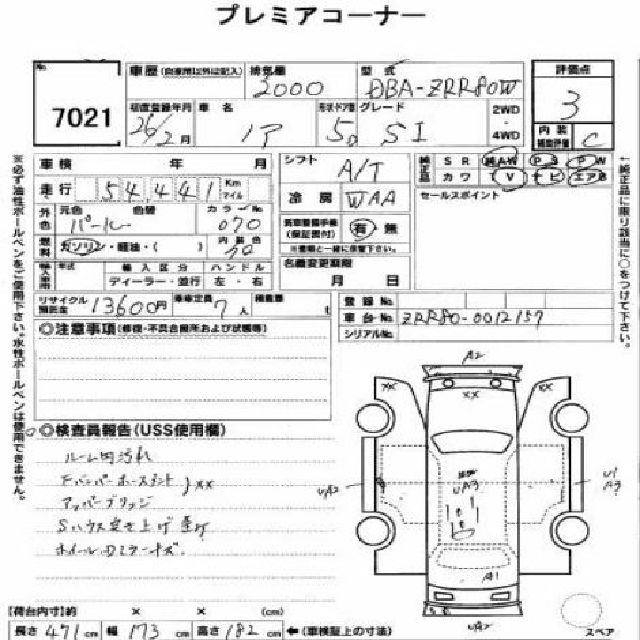 プレミアコーナー
No.
7021
車歴 (自家用以外は記入)
排気量 2000
型式 DBA-ZRR80W
評価点 3
初度登録年月 26/2月
車名 ノア
形状ドア数 5D
グレード SI
2WD
4WD
内装 C
補助評価
車検 年 月
走行 54,441 Km
マイル
外色 元色 パール 色替
カラーNo. 070
燃料 ガソリン・軽油・( )
内装色 クロ
輸入車用 年式 輸入区分 ハンドル
ディーラー・並行 左・右
リサイクル預託金 13600円 乗車定員 7人 積載量 t
シフト A/T
冷房 WAA
新車整備手帳(保証書付) 有・無
※書類と一緒に保管下さい。
名義変更期限
月 日
純正品 SR AW PS PW
カワ TV ナビ エアB
セールスポイント
登録No.
車台No. ZRR80-0012157
シリアルNo.
◎注意事項 (修復・不具合箇所および状態等)
◎検査員報告 (USS使用欄)
ルーム内汚れ
Fバンパーホースメント
アッパーブリッジ } XX
Sハウス突き上げ
ホイール
A2
XX
XX XX
UA2
UA3
U1
A3
A1
UA2
スペア
【荷台内寸】約 × × (cm)
長さ 471 cm 幅 173 cm 高さ 182 cm ←(車検証上の寸法)
※必ず油性ボールペンをご使用下さい。水性ボールペンは使用できません。
↑純正品に限り該当に○をつけて下さい。